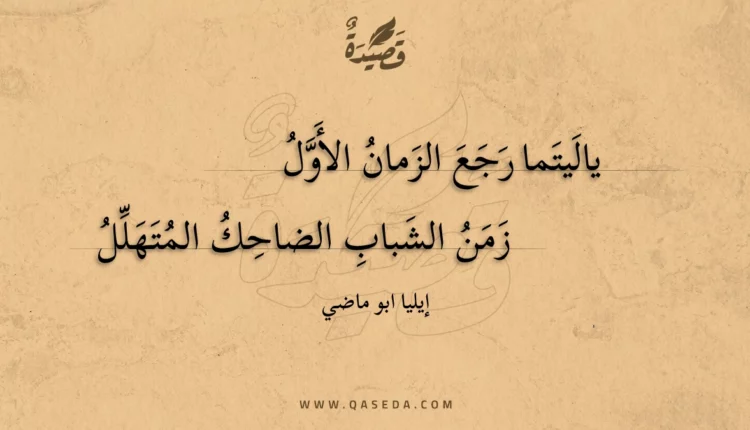 قَصِيْدَةٌ
يالَيتَما رَجَعَ الزَمانُ الأَوَّلُ
زَمَنُ الشَبابِ الضاحِكُ المُتَهَلِّلُ
إيليا ابو ماضي
WWW.QASEDA.COM